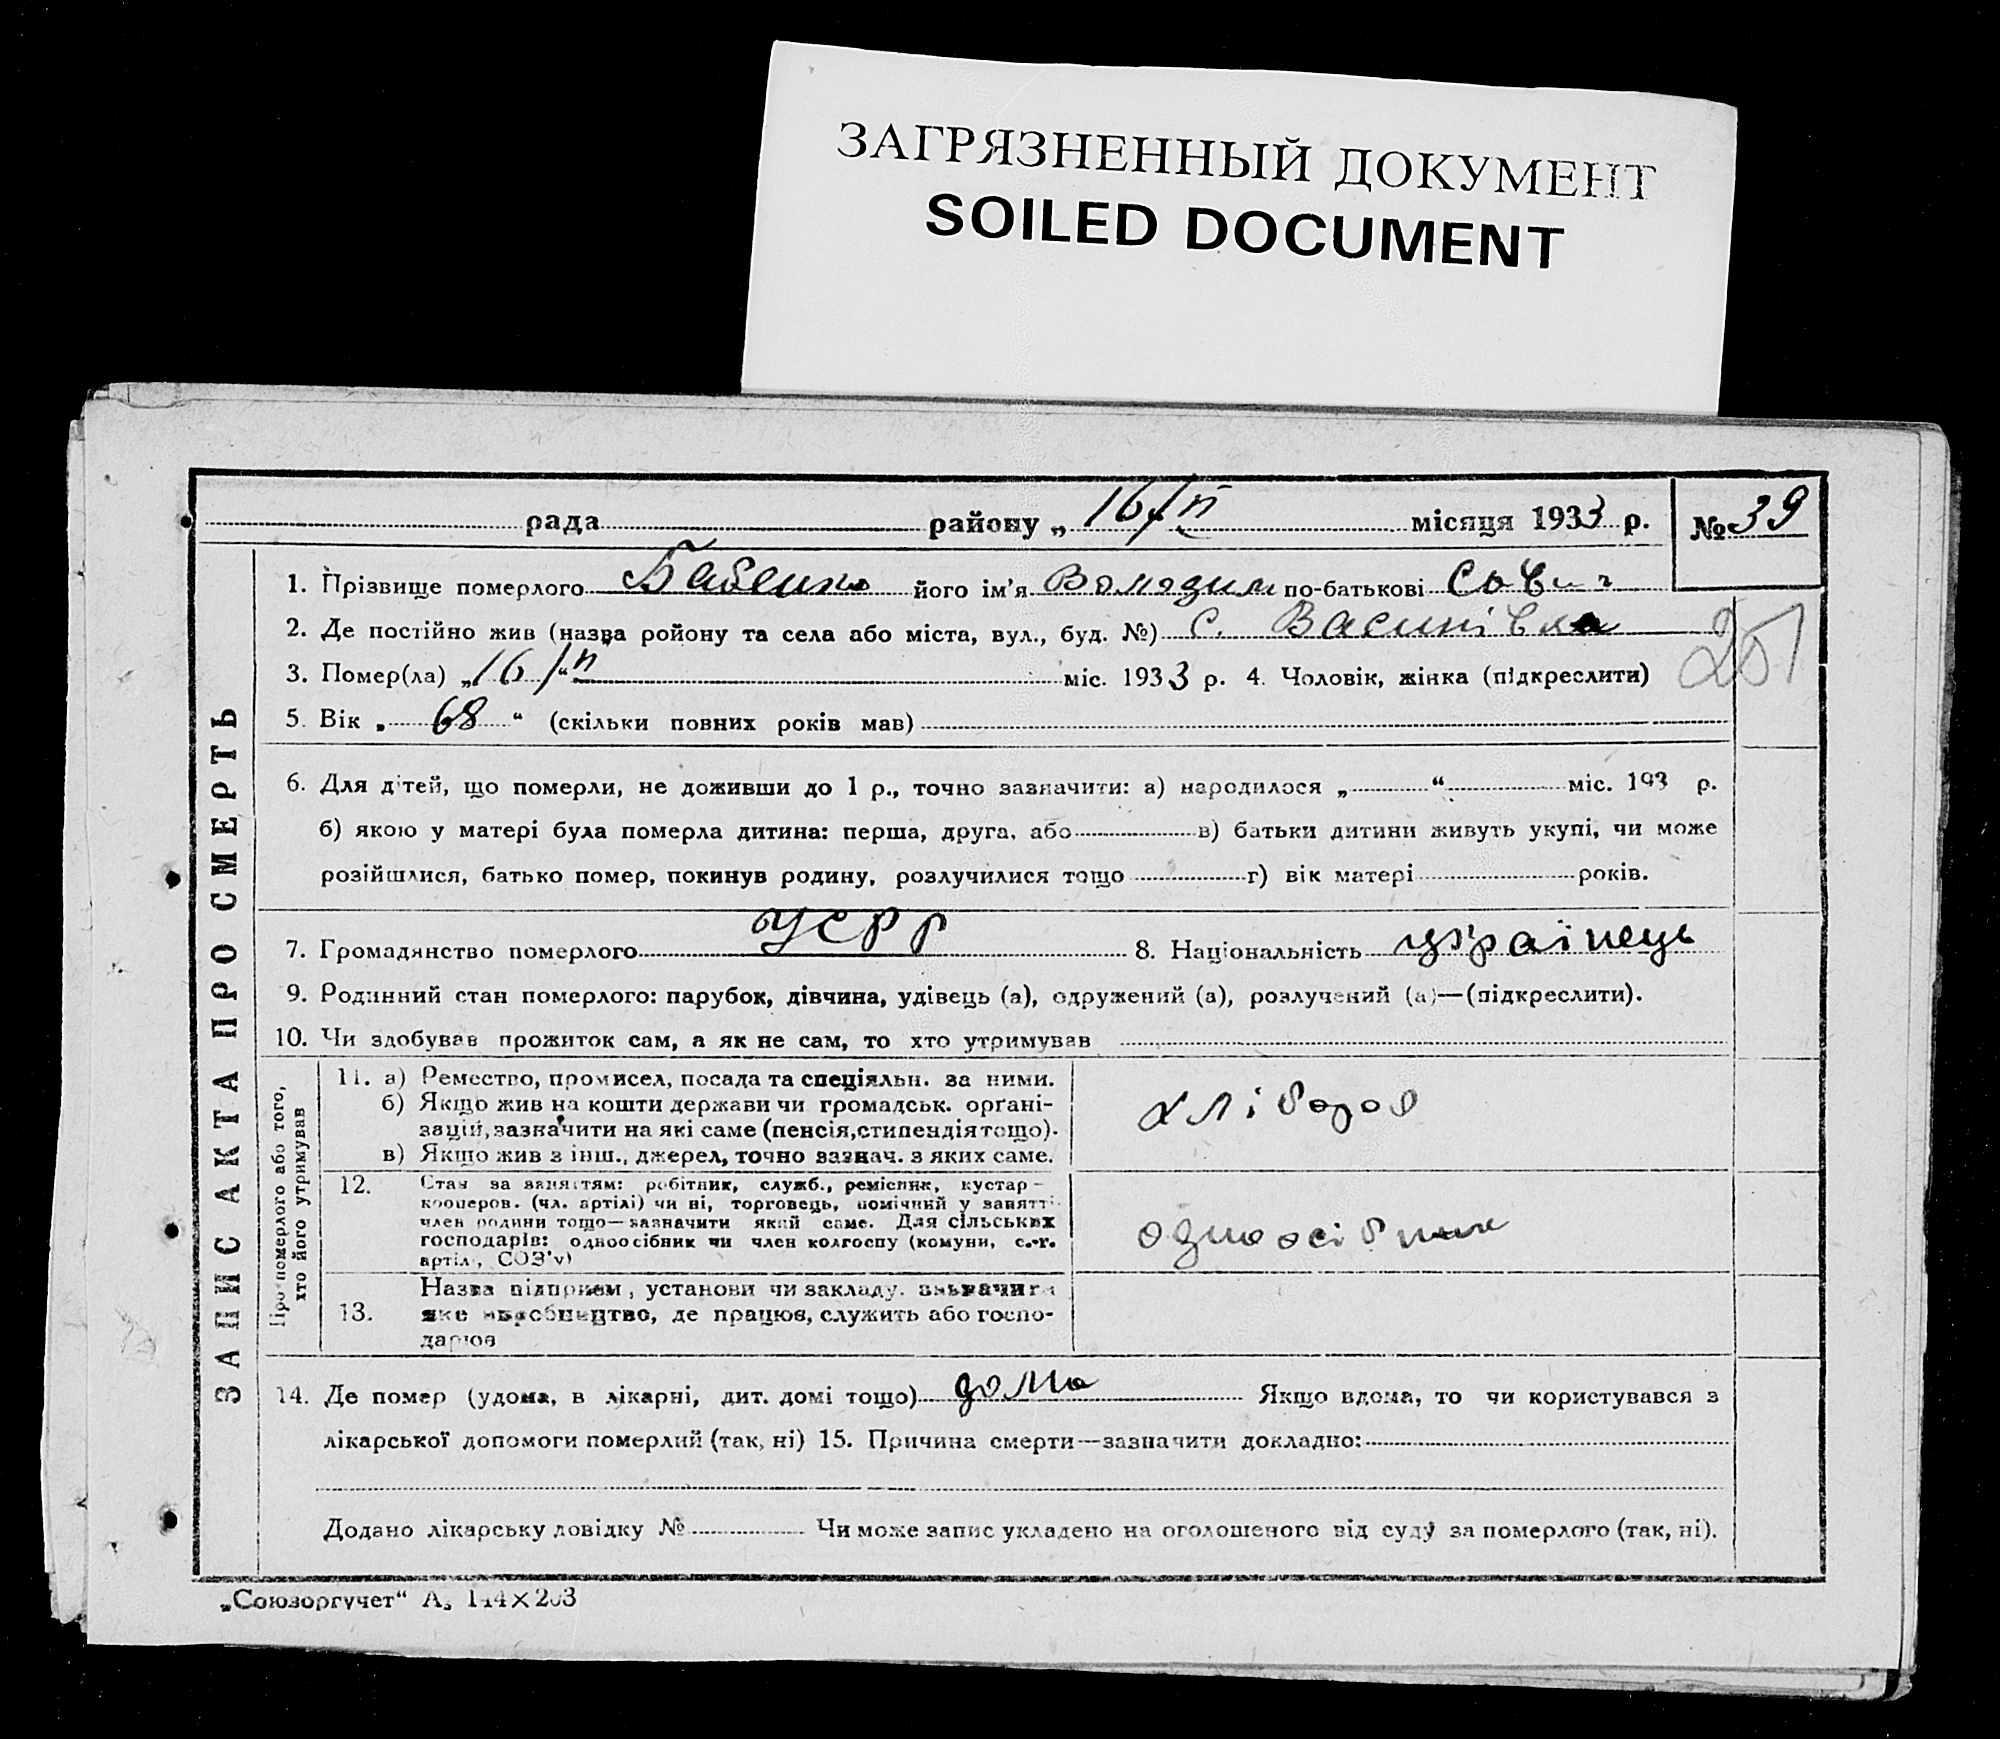 ЗАГРЯЗНЕННЫЙ ДОКУМЕНТ
SOILED DOCUMENT
рада району „ 16/II місяця 1933 р. № 39
1. Прізвище померлого Бабенко його ім'я Володим по-батькові Сав
2. Де постійно жив (назва ройону та села або міста, вул., буд. №) с. Василівка
251
3. Помер(ла) „16/II“ міс. 1933 р. 4. Чоловік, жінка (підкреслити)
5. Вік „ 68 “ (скільки повних років мав)
6. Для дітей, що померли, не доживши до 1 р., точно зазначити: а) народилося „ “ міс. 193 р.
б) якою у матері була померла дитина: перша, друга, або в) батьки дитини живуть укупі, чи може
розійшлися, батько помер, покинув родину, розлучилися тощо г) вік матері років.
7. Громадянство померлого УСРР 8. Національність українець
9. Родинний стан померлого: парубок, дівчина, удівець (а), одружений (а), розлучений (а)—(підкреслити).
10. Чи здобував прожиток сам, а як не сам, то хто утримував
Про померлого або того,
хто його утримував
11. а) Ремество, промисел, посада та спеціяльн. за ними.
б) Якщо жив на кошти держави чи громадськ. орґані-
зацій, зазначити на які саме (пенсія, стипендія тощо).
в) Якщо жив з інш., джерел, точно зазнач. з яких саме.
хлібороб
12. Стан за заняттям: робітник, служб., ремісник, кустар-
кооперов. (чл. артілі) чи ні, торговець, помічний у занятті
член родини тощо—зазначити який саме. Для сільських
господарів: одноосібник чи член колгоспу (комуни, с.-г.
артіл., СОЗ'у)
одноосібник
13. Назва підприєм, установи чи закладу.
яке виробництво, де працює, служить або госпо-
дарює
14. Де помер (удома, в лікарні, дит. домі тощо) дома Якщо вдома, то чи користувався з
лікарської допомоги померлий (так, ні) 15. Причина смерти—зазначити докладно:
Додано лікарську довідку № Чи може запис укладено на оголошеного від суду за померлого (так, ні).
ЗАПИС АКТА ПРО СМЕРТЬ
„Союзоргучет“ А₅ 144×203